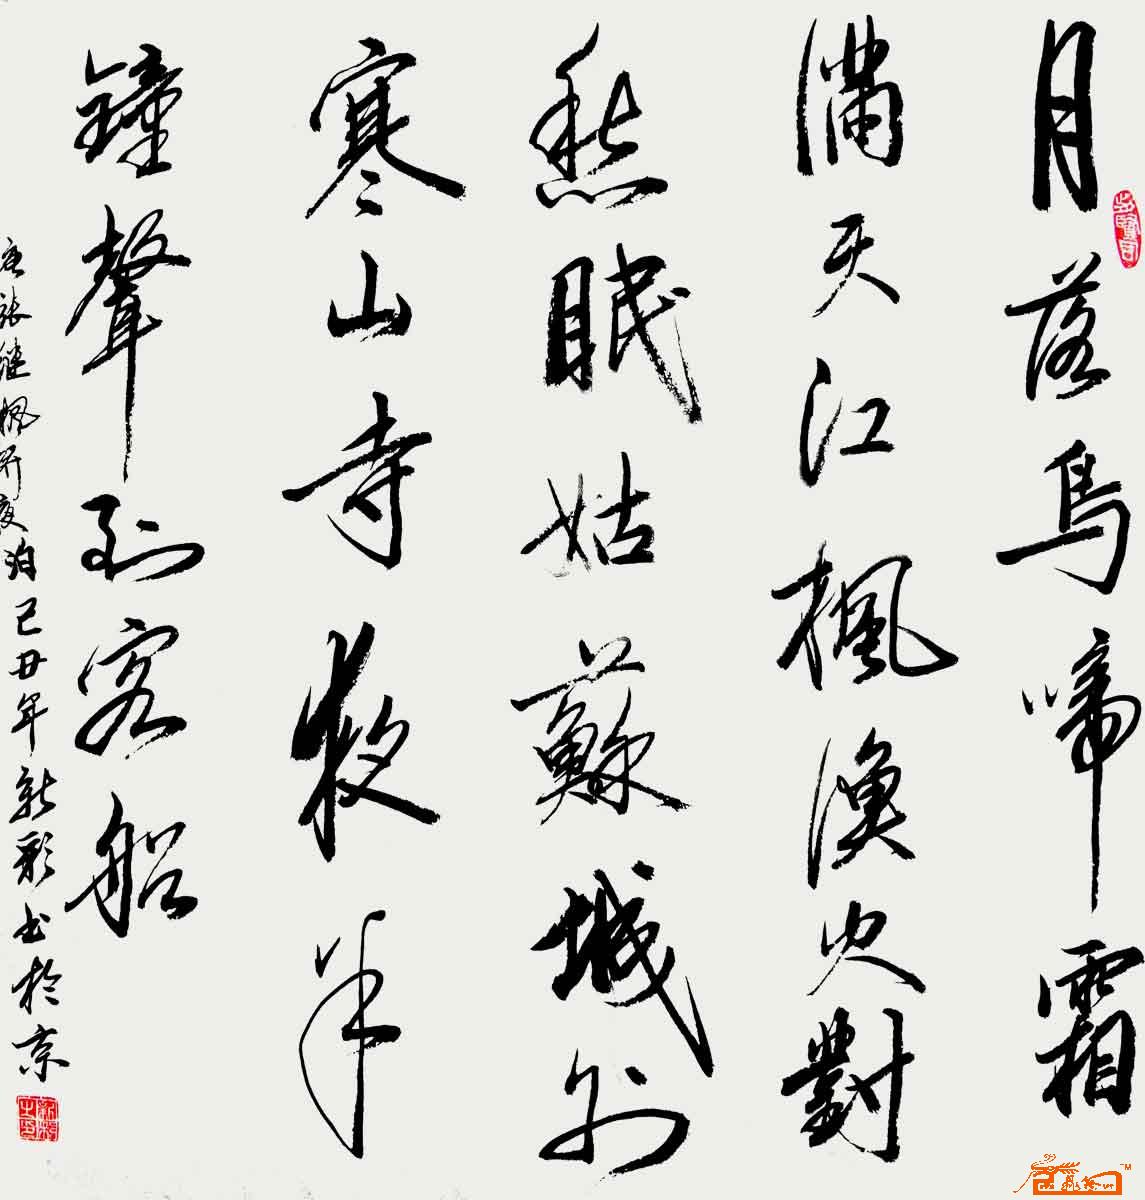 月落烏啼霜
滿天江楓漁火對
愁眠姑蘇城外
寒山寺夜半
鐘聲到客船
唐張继楓桥夜泊己丑年新彩书於京